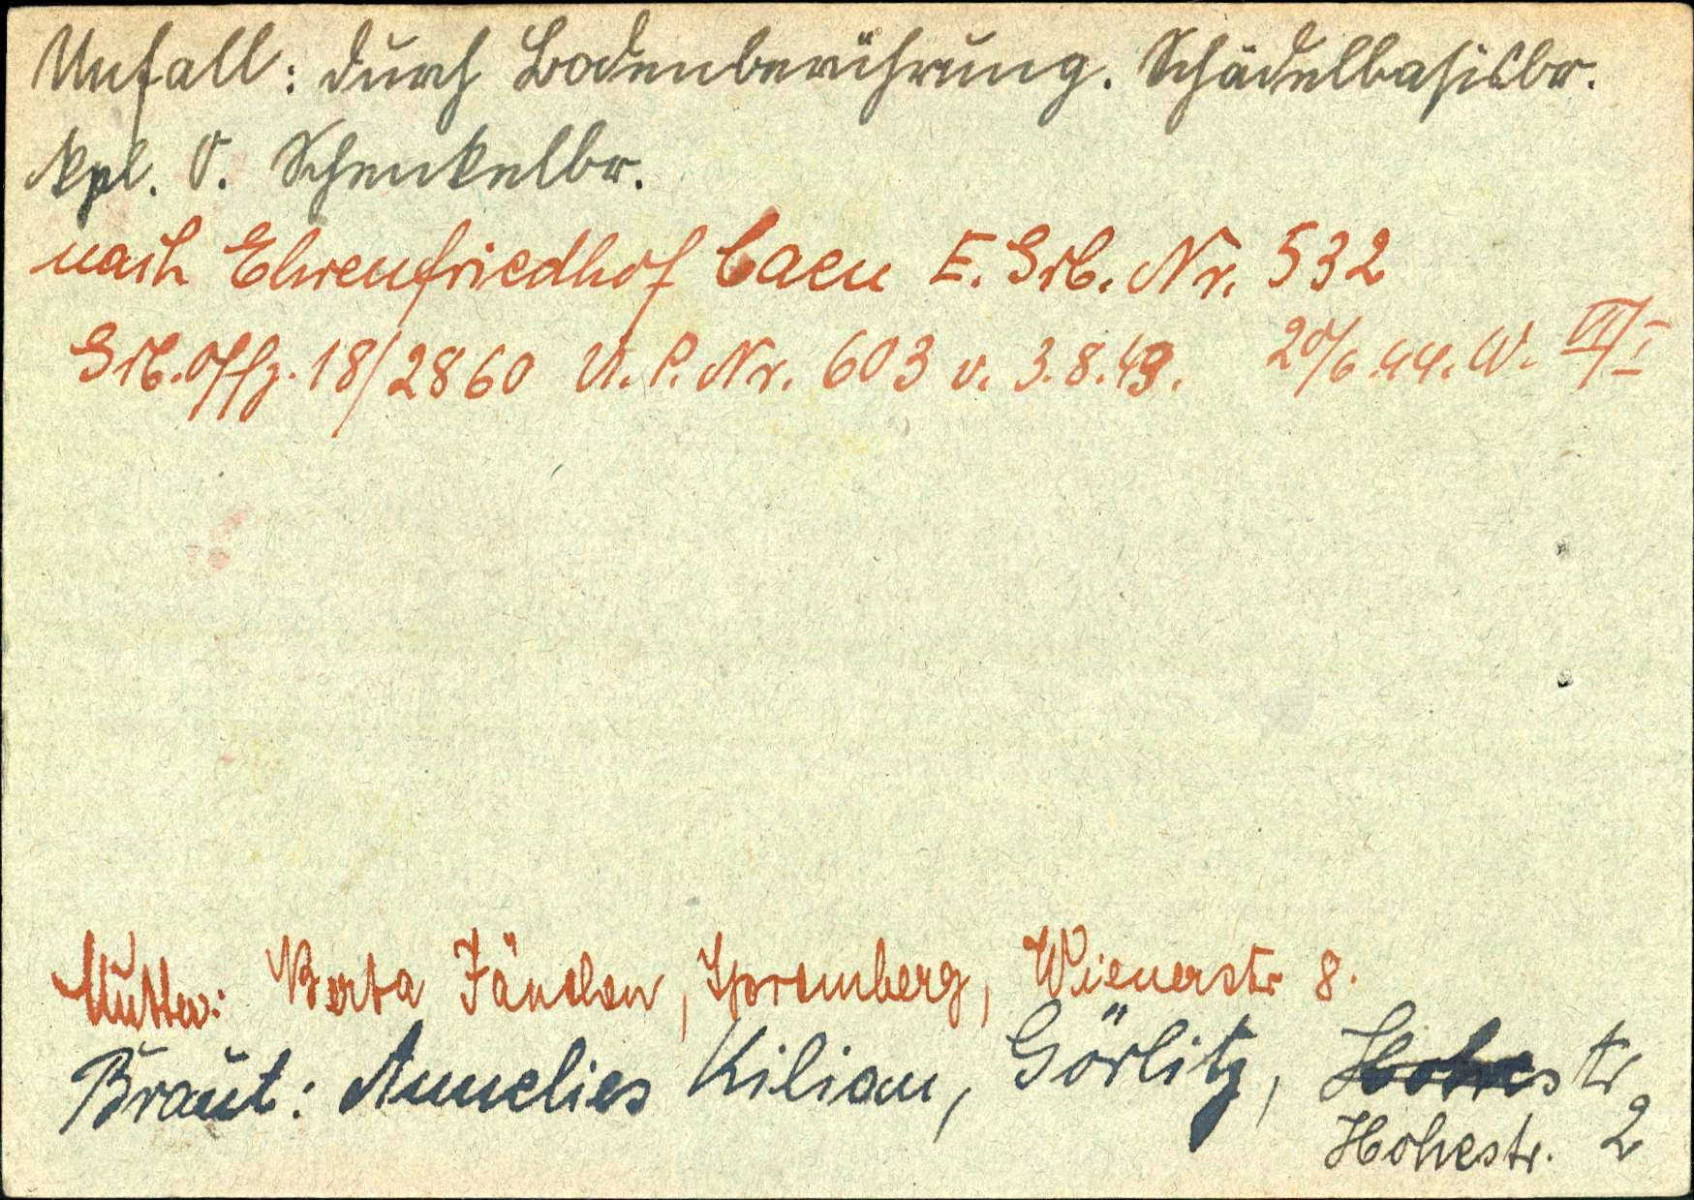 Unfall: durch Bodenberührung. Schädelbasisbr.
kpl. O. Schenkelbr.
nach Ehrenfriedhof Caen E. Grb. Nr. 532
Grb. Offz. 18/2860 U. P. Nr. 603 v. 3.8.43. 20/6.44. W. VII/I
Mutter: Berta Jänchen, Spremberg, Wienerstr 8.
Braut: Annelies Kilian, Görlitz,
Hohestr. 2